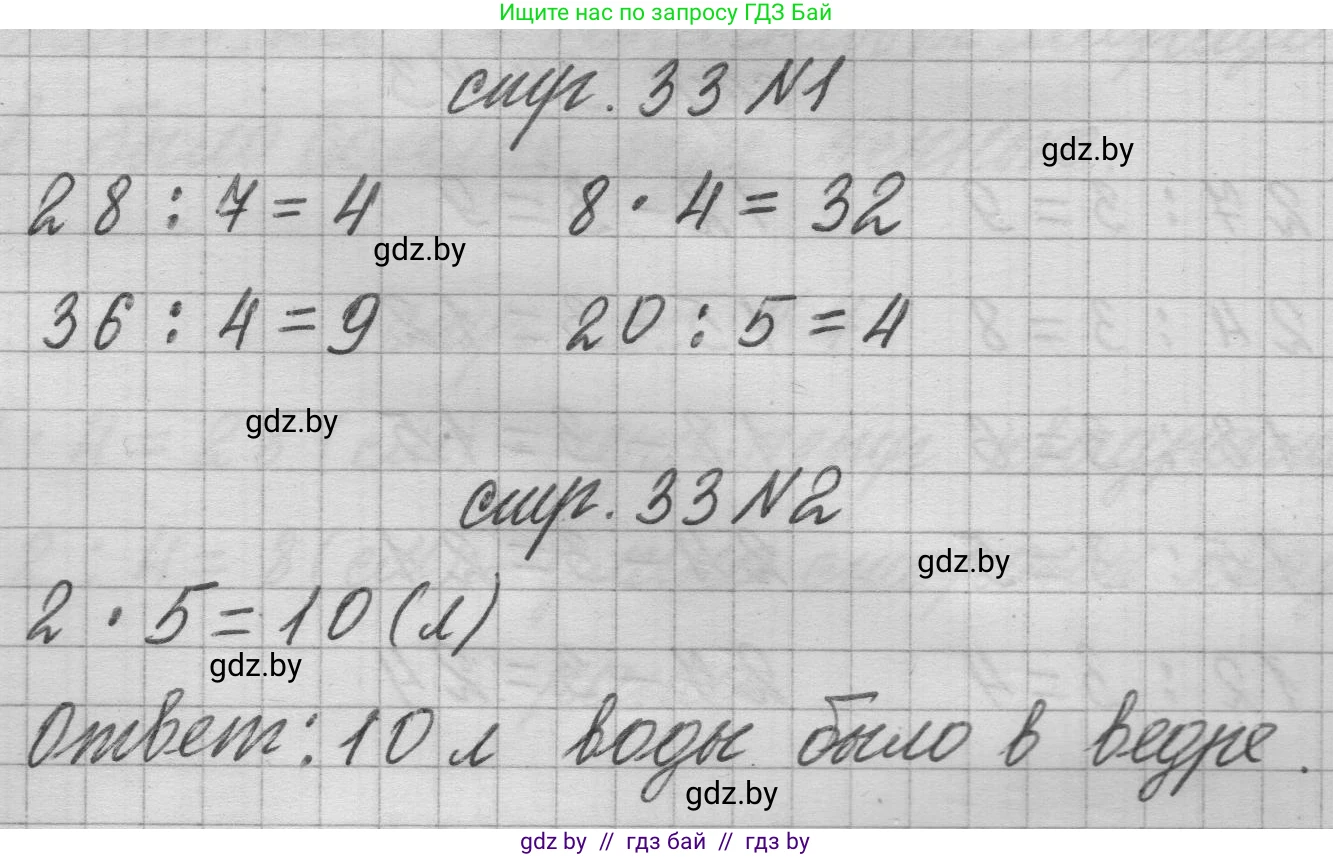 Ищите нас по запросу ГДЗ Бай
стр. 33 №1
gdz.by
28 : 7 = 4 8 · 4 = 32
gdz.by
36 : 4 = 9 20 : 5 = 4
gdz.by
стр. 33 №2
gdz.by
2 · 5 = 10 (л)
gdz.by
Ответ: 10 л воды было в ведре.
gdz.by
gdz by // гдз бай // гдз by